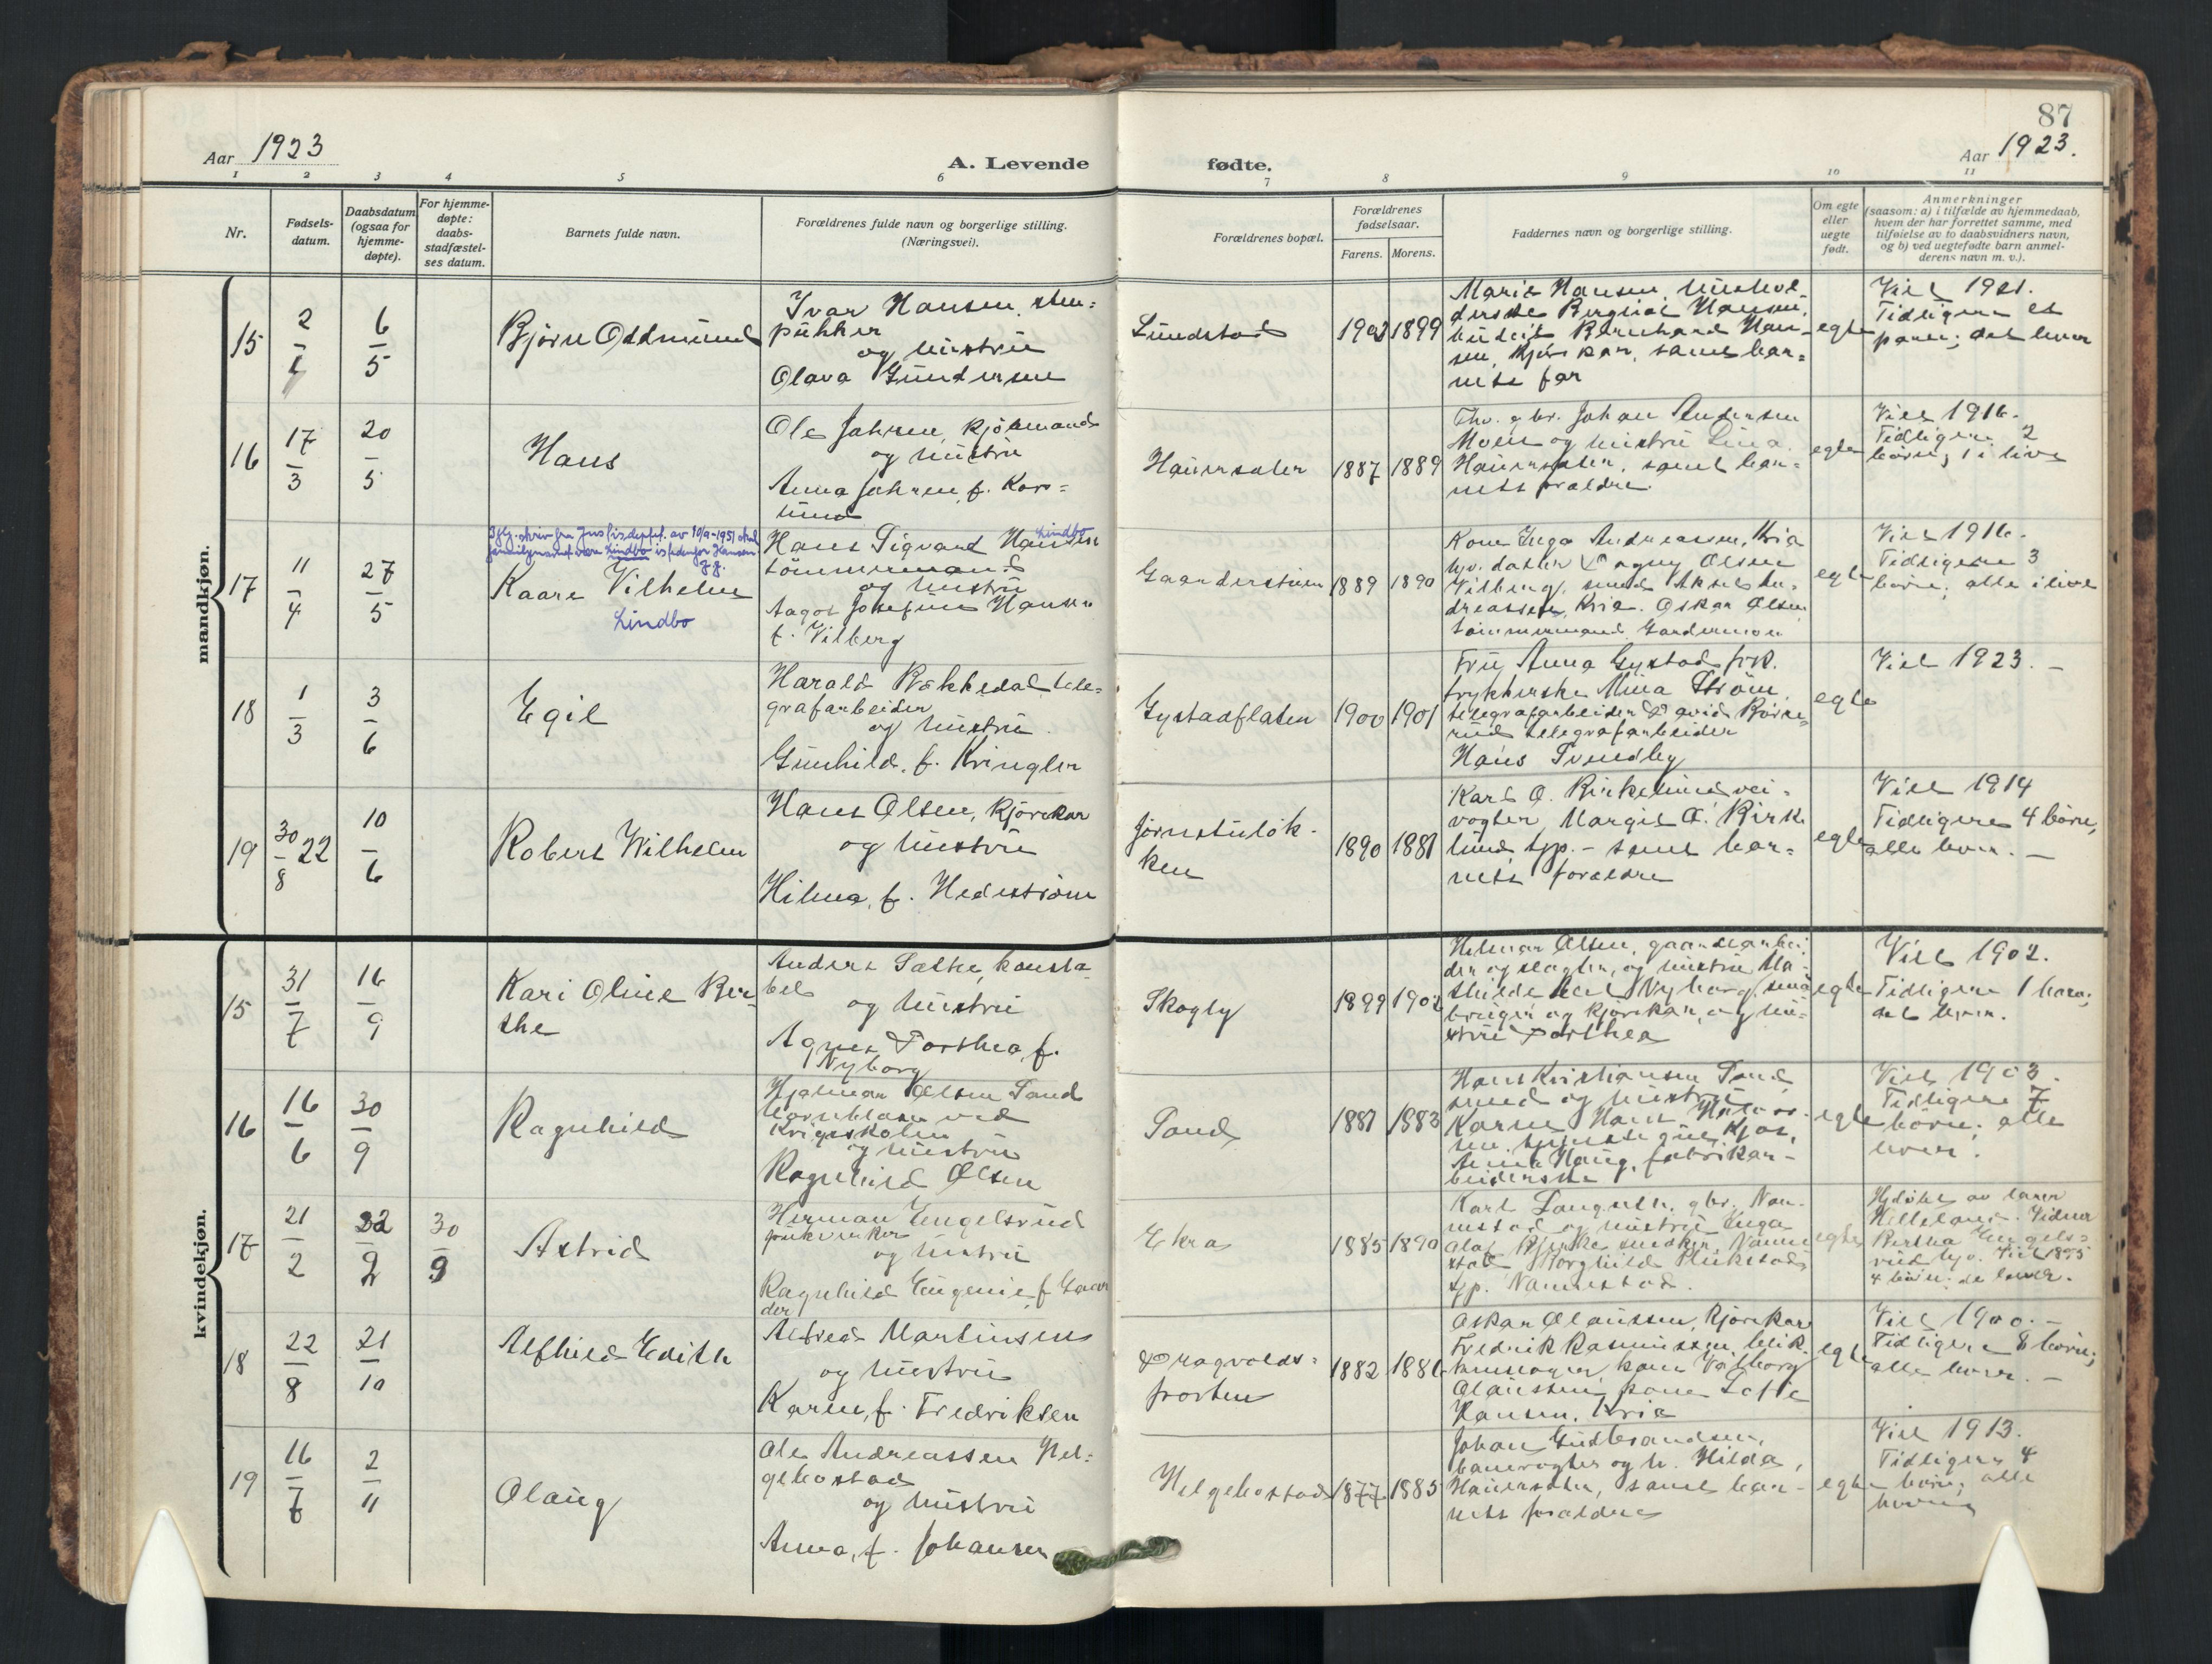 87
Aar 1923
A. Levende
fødte.
Aar 1923.
1 2 3 4 5 6 7 8 9 10 11
Nr.
Fødsels-
datum.
Daabsdatum
(ogsaa for
hjemme-
døpte).
For hjemme-
døpte:
daabs-
stadfæstel-
ses datum.
Barnets fulde navn.
Forældrenes fulde navn og borgerlige stilling.
(Næringsvei).
Forældrenes bopæl.
Forældrenes
fødselsaar.
Farens. Morens.
Faddernes navn og borgerlige stilling.
Om egte
eller
uegte
født.
Anmerkninger
(saasom: a) i tilfælde av hjemmedaab,
hvem der har forrettet samme, med
tilføielse av to daabsvidners navn,
og b) ved uegtefødte barn anmel-
derens navn m. v.).
mandkjøn.
15
2
6
5
Bjørn Oddmund
Ivar Hansen, sten=
pukker
og hustru
Olava Gundersen
Lundstad
1902 1899
Marie Hansen, hushol-
derske
Bernhard Han-
sen, kjørekar, samt bar=
nets far
egte
Viet 1921.
Tidligere et
barn; det lever
16
17
3
20
5
Hans
Ole Jahren, kjøbmand
og hustru
Anna Jahren, f. Kors=
lund
Hauerseter
1887 1889
Thv. gbr. Johan Andersen
Moen og hustru Lina
Hauerseter, samt bar=
nets forældre.
egte
Viet 1916.
Tidligere 2
børn; 1 i live
17
11
4
27
5
Ifølg. skriv fra Justisdeptet. av 10/9-1951 skal
familienavnet være Lindbo istedenfor Hansen.
Kaare Vilhelm
Lindbo
Hans Sigvard Hansen Lindbo
tømmermand
og hustru
Aagot Josefine Hansen
f. Vilberg
1889 1890
Kone Inga Andreassen, Kria
hjv. datter Dagny Olsen
Vilberg, smed Aksel An-
dreassen, Kria. Oskar Olsen
tømmermand Gardermoen
egte
Viet 1916.
Tidligere 3
børn; alle i live
18
1
3
3
6
Egil
Harald Bækkedal tele=
grafarbeider
og hustru
Gunhild, f. Kringler
Gystadflaten
1900 1901
Fru Anna Gystad frk.
trykkerske Mina Strøm,
telegrafarbeider David Bjørke-
rud telegrafarbeider
Hans Tveedby
egte
Viet 1923. –
19
30
8
22
10
6
Robert Wilhelm
Hans Olsen, kjørekar
og hustru
Hilma, f. Hedestrøm
Jørnstuløk-
ken
1890 1881
Karl O. Birkelund vei-
vogter, Margit O. Birke
lund tjp. – samt bar=
nets forældre
egte
Viet 1914
Tidligere 4 børn,
alle lever. –
kvindekjøn.
15
31
7
16
9
Kari Oline Ber-
the
Anders Sætre, konsta-
bel
og hustru
Agnes Dorthea, f.
Nyborg
Skogly
1899 1902
Helmar Olsen, gaardsarbei-
der og slagter, og hustru Ma-
thilde Nyborg, smaa
bruger og kjørekar, og hu=
stru Dorthea
egte
Viet 1902.
Tidligere 1 barn;
det lever.
16
16
6
30
9
Ragnhild
Hjalmar Olsen Sand
hornblaser ved
Krigsskolen
og hustru
Ragnhild Olsen
Sand
1881 1883
Hans Kristiansen Sand
smed og hustru
Karen
Anna Haug, fabrikar-
beiderske
egte
Viet 1903.
Tidligere 7
børn; alle
lever.
17
21
2
22
2
30
9
Astrid
Herman Engelsrud
og hustru
Ragnhild Eugenie f. Gaar
der
Ekra
1885 1890
Karl Langseth, gbr. Nan-
nestad og hustru Inga
Olaf Bjerke smedkjr. Nanne
stad Borghild
tjp. Nannestad.
egte
Hjdøbt av lærer
Helleland. Vidner
Bertha Engels=
rud hjv.
4 børn: de lever.
18
22
8
21
10
Alfhild Edith
Alfred Martinsen
og hustru
Karen, f. Fredriksen
Dragvolds-
porten
1882 1881
Oskar Olaussen, kjørekar
Fredrik Rasmussen, blik-
kenslager, kone Valborg
Olaussen, kone Lotte
Hansen, Kria
egte
Viet 1900. –
Tidligere 8 børn;
alle lever. –
19
16
7
2
11
Olaug
Ole Andreassen Hel=
gebostad
og hustru
Anna, f. Johansen
Helgebostad
1877 1885
Johan Gudbrandsen,
banevogter og h. Hilda,
Hauerseter, samt bar-
nets forældre
egte
Viet 1913.
Tidligere 4
børn; alle
lever